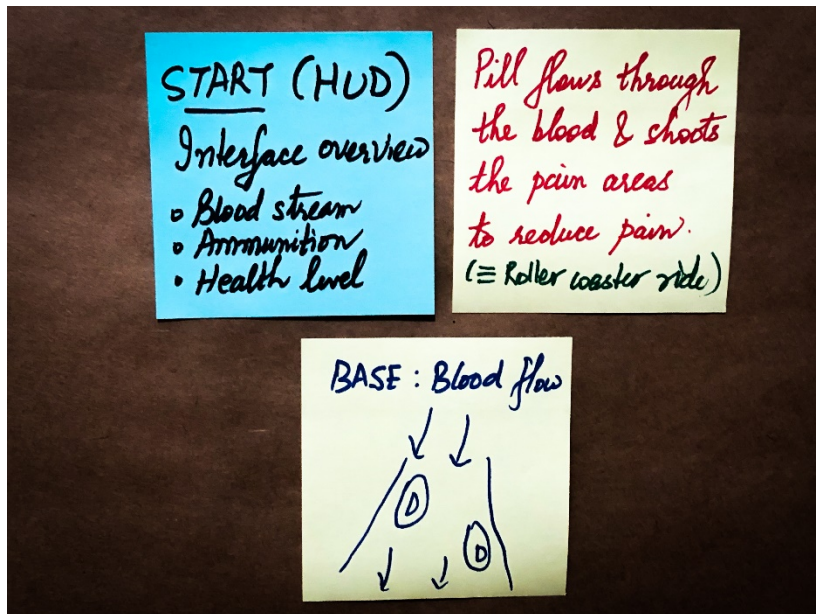 START (HUD)
Interface overview
Blood stream
Ammunition
Health level
Pill flows through
the blood & shoots
the pain areas
to reduce pain.
(≡ Roller coaster ride)
BASE : Blood flow
D
D